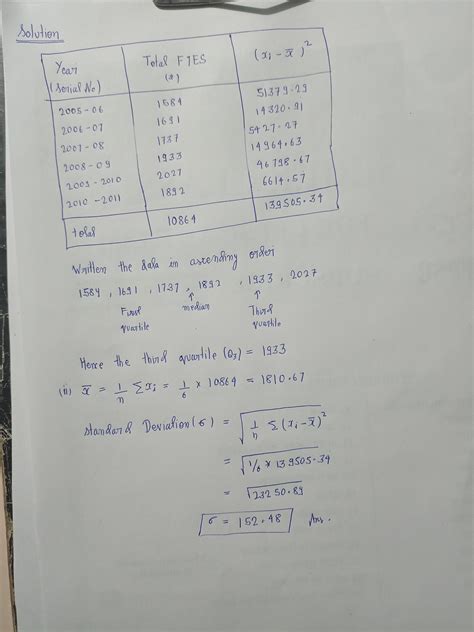 Solution
Year (Serial No) Total FTES (x) (xᵢ - x̄)²
2005-06 1584 51379.29
2006-07 1691 14320.91
2007-08 1737 5427.27
2008-09 1933 14964.63
2009-2010 2027 46798.67
2010-2011 1892 6614.57
total 10864 139505.34
Written the data in ascending order
1584, 1691, 1737, 1892, 1933, 2027
First quartile ↑ median ↑ Third quartile
Hence the third quartile (Q₃) = 1933
(ii) x̄ = 1/n Σxᵢ = 1/6 × 10864 = 1810.67
Standard Deviation(σ) = √(1/n Σ(xᵢ-x̄)²)
= √(1/6 × 139505.34)
= √23250.89
σ = 152.48 Ans.